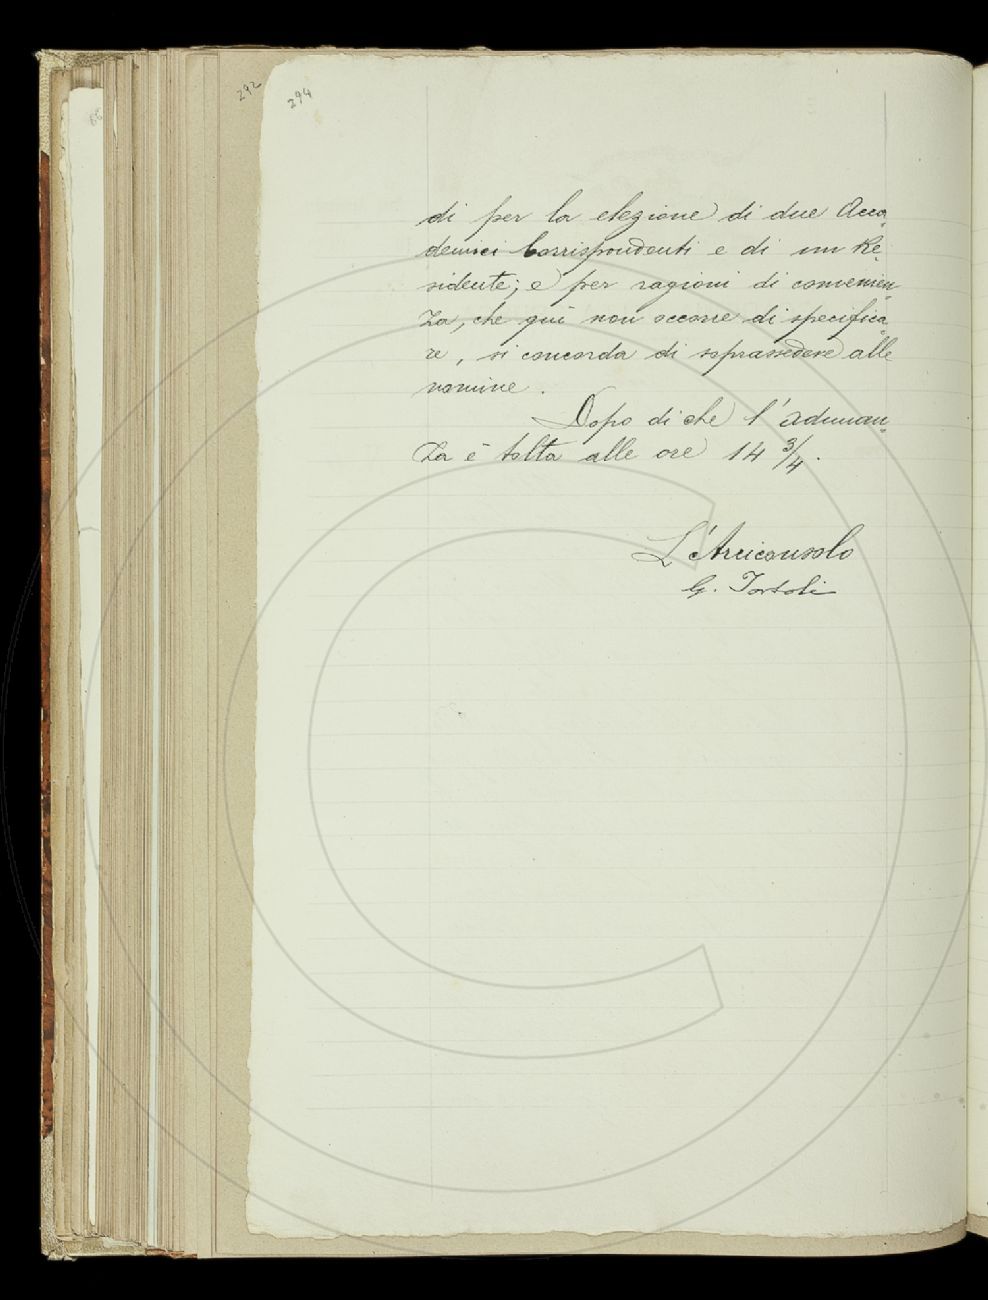 292
294
di per la elezione di due Acca=
demici Corrispondenti e di un Re=
sidente; e per ragioni di convenien=
za, che qui non occorre di specifica=
re, si concorda di soprassedere alle
nomine.
Dopo di che l'adunan=
za è tolta alle ore 14 3/4.
L'Arciconsolo
G. Tortoli